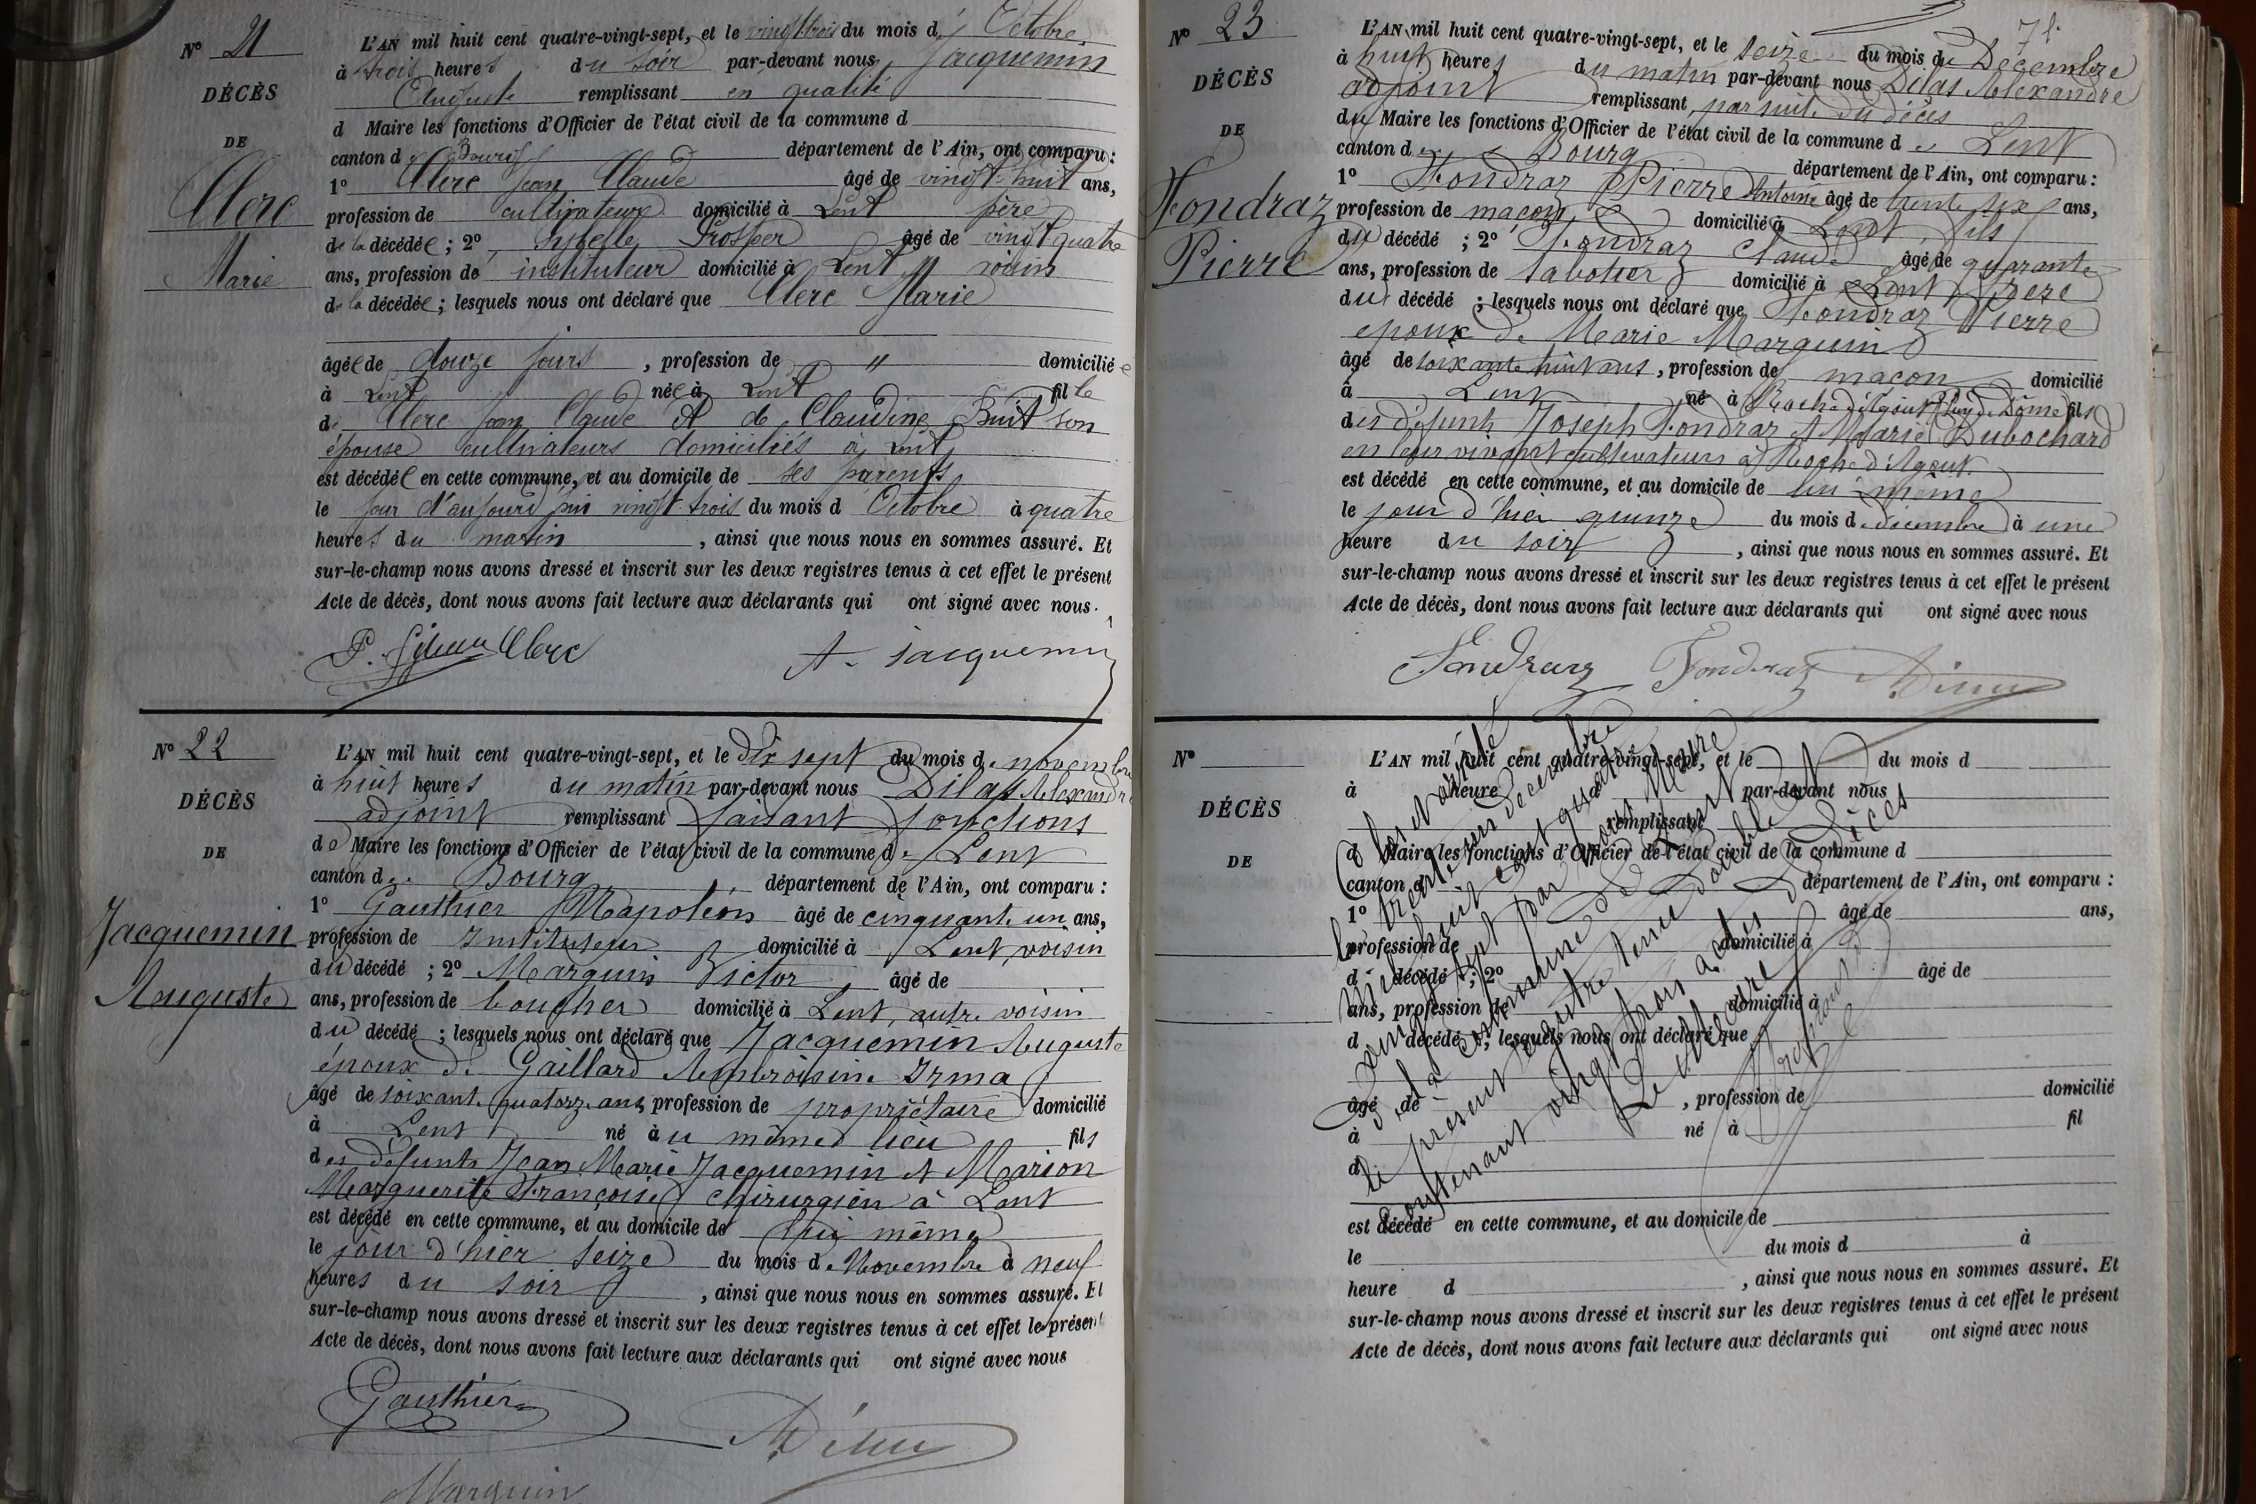 N° 21
DÉCÈS
DE
Clerc
Marie
L'AN mil huit cent quatre-vingt-sept, et le vingt trois du mois d' Octobre
à trois heures du soir par-devant nous Jacquemin
Auguste remplissant en qualité
d Maire les fonctions d'Officier de l'état civil de la commune d
canton d Bourg département de l'Ain, ont comparu :
1° Clerc Jean Claude âgé de vingt-huit ans,
profession de cultivateur domicilié à Lent père
de la décédée ; 2° Prosper âgé de vingt quatre
ans, profession de instituteur domicilié à Lent voisin
de la décédée ; lesquels nous ont déclaré que Clerc Marie
âgée de douze jours , profession de " domiciliée
à Lent née à Lent fille
de Clerc Jean Claude et de Claudine Buit son
épouse cultivateurs domiciliés à Lent
est décédée en cette commune, et au domicile de ses parents
le jour d'aujourd'hui vingt-trois du mois d' Octobre à quatre
heures du matin , ainsi que nous nous en sommes assuré. Et
sur-le-champ nous avons dressé et inscrit sur les deux registres tenus à cet effet le présent
Acte de décès, dont nous avons fait lecture aux déclarants qui ont signé avec nous.
Clerc A. Jacquemin
N° 22
DÉCÈS
DE
Jacquemin
Auguste
L'AN mil huit cent quatre-vingt-sept, et le dix sept du mois de novembre
à huit heures du matin par-devant nous Dilas Alexandre
adjoint remplissant faisant fonctions
de Maire les fonctions d'Officier de l'état civil de la commune de Lent
canton de Bourg département de l'Ain, ont comparu :
1° Gauthier Napoléon âgé de cinquante un ans,
profession de Instituteur domicilié à Lent, voisin
du décédé ; 2° Marguin Victor âgé de
ans, profession de boucher domicilié à Lent, autre voisin
du décédé ; lesquels nous ont déclaré que Jacquemin Auguste
époux de Gaillard Ambroisine Irma
âgé de soixante quatorze ans, profession de propriétaire domicilié
à Lent né à u même lieu fils
des défunts Jean Marie Jacquemin et Marion
Marguerite Françoise chirurgien à Lent
est décédé en cette commune, et au domicile de lui même
le jour d'hier seize du mois de Novembre à neuf
heures du soir , ainsi que nous nous en sommes assuré. Et
sur-le-champ nous avons dressé et inscrit sur les deux registres tenus à cet effet le présent
Acte de décès, dont nous avons fait lecture aux déclarants qui ont signé avec nous
Gauthier
Marguin
N° 23
DÉCÈS
DE
Fondraz
Pierre
L'AN mil huit cent quatre-vingt-sept, et le seize du mois de Décembre
à huit heures du matin par-devant nous Dilas Alexandre
adjoint remplissant par suite du décès
du Maire les fonctions d'Officier de l'état civil de la commune de Lent
canton de Bourg département de l'Ain, ont comparu :
1° Fondraz Pierre Antoine âgé de trente six ans,
profession de maçon domicilié à Lent, fils
du décédé ; 2° Fondraz Claude âgé de quarante
ans, profession de sabotier domicilié à Lent, frère
du décédé ; lesquels nous ont déclaré que Fondraz Pierre
époux de Marie Marguin
âgé de soixante huit ans, profession de maçon domicilié
à Lent né à Roche d'Agout Puy de Dôme fils
des défunts Joseph Fondraz et Marie Dubochard
en leur vivant cultivateurs à Roche d'Agout
est décédé en cette commune, et au domicile de lui même
le jour d'hier quinze du mois de décembre à une
heure du soir , ainsi que nous nous en sommes assuré. Et
sur-le-champ nous avons dressé et inscrit sur les deux registres tenus à cet effet le présent
Acte de décès, dont nous avons fait lecture aux déclarants qui ont signé avec nous
Fondraz Fondraz
N°
DÉCÈS
DE
L'AN mil huit cent quatre-vingt-sept, et le du mois d
à heure d par-devant nous
remplissant
d Maire les fonctions d'Officier de l'état civil de la commune d
canton d département de l'Ain, ont comparu :
1° âgé de ans,
profession de domicilié à
d décédé ; 2° âgé de
ans, profession de domicilié à
d décédé ; lesquels nous ont déclaré que
âgé de , profession de domicilié
à né à fil
d
est décédé en cette commune, et au domicile de
le du mois d à
heure d , ainsi que nous nous en sommes assuré. Et
sur-le-champ nous avons dressé et inscrit sur les deux registres tenus à cet effet le présent
Acte de décès, dont nous avons fait lecture aux déclarants qui ont signé avec nous
Clos et arrêté
le trente un décembre
mil huit cent quatre
vingt sept par nous Maire
de la commune de Lent
le présent registre tenu double et
contenant vingt trois actes de décès
Le Maire